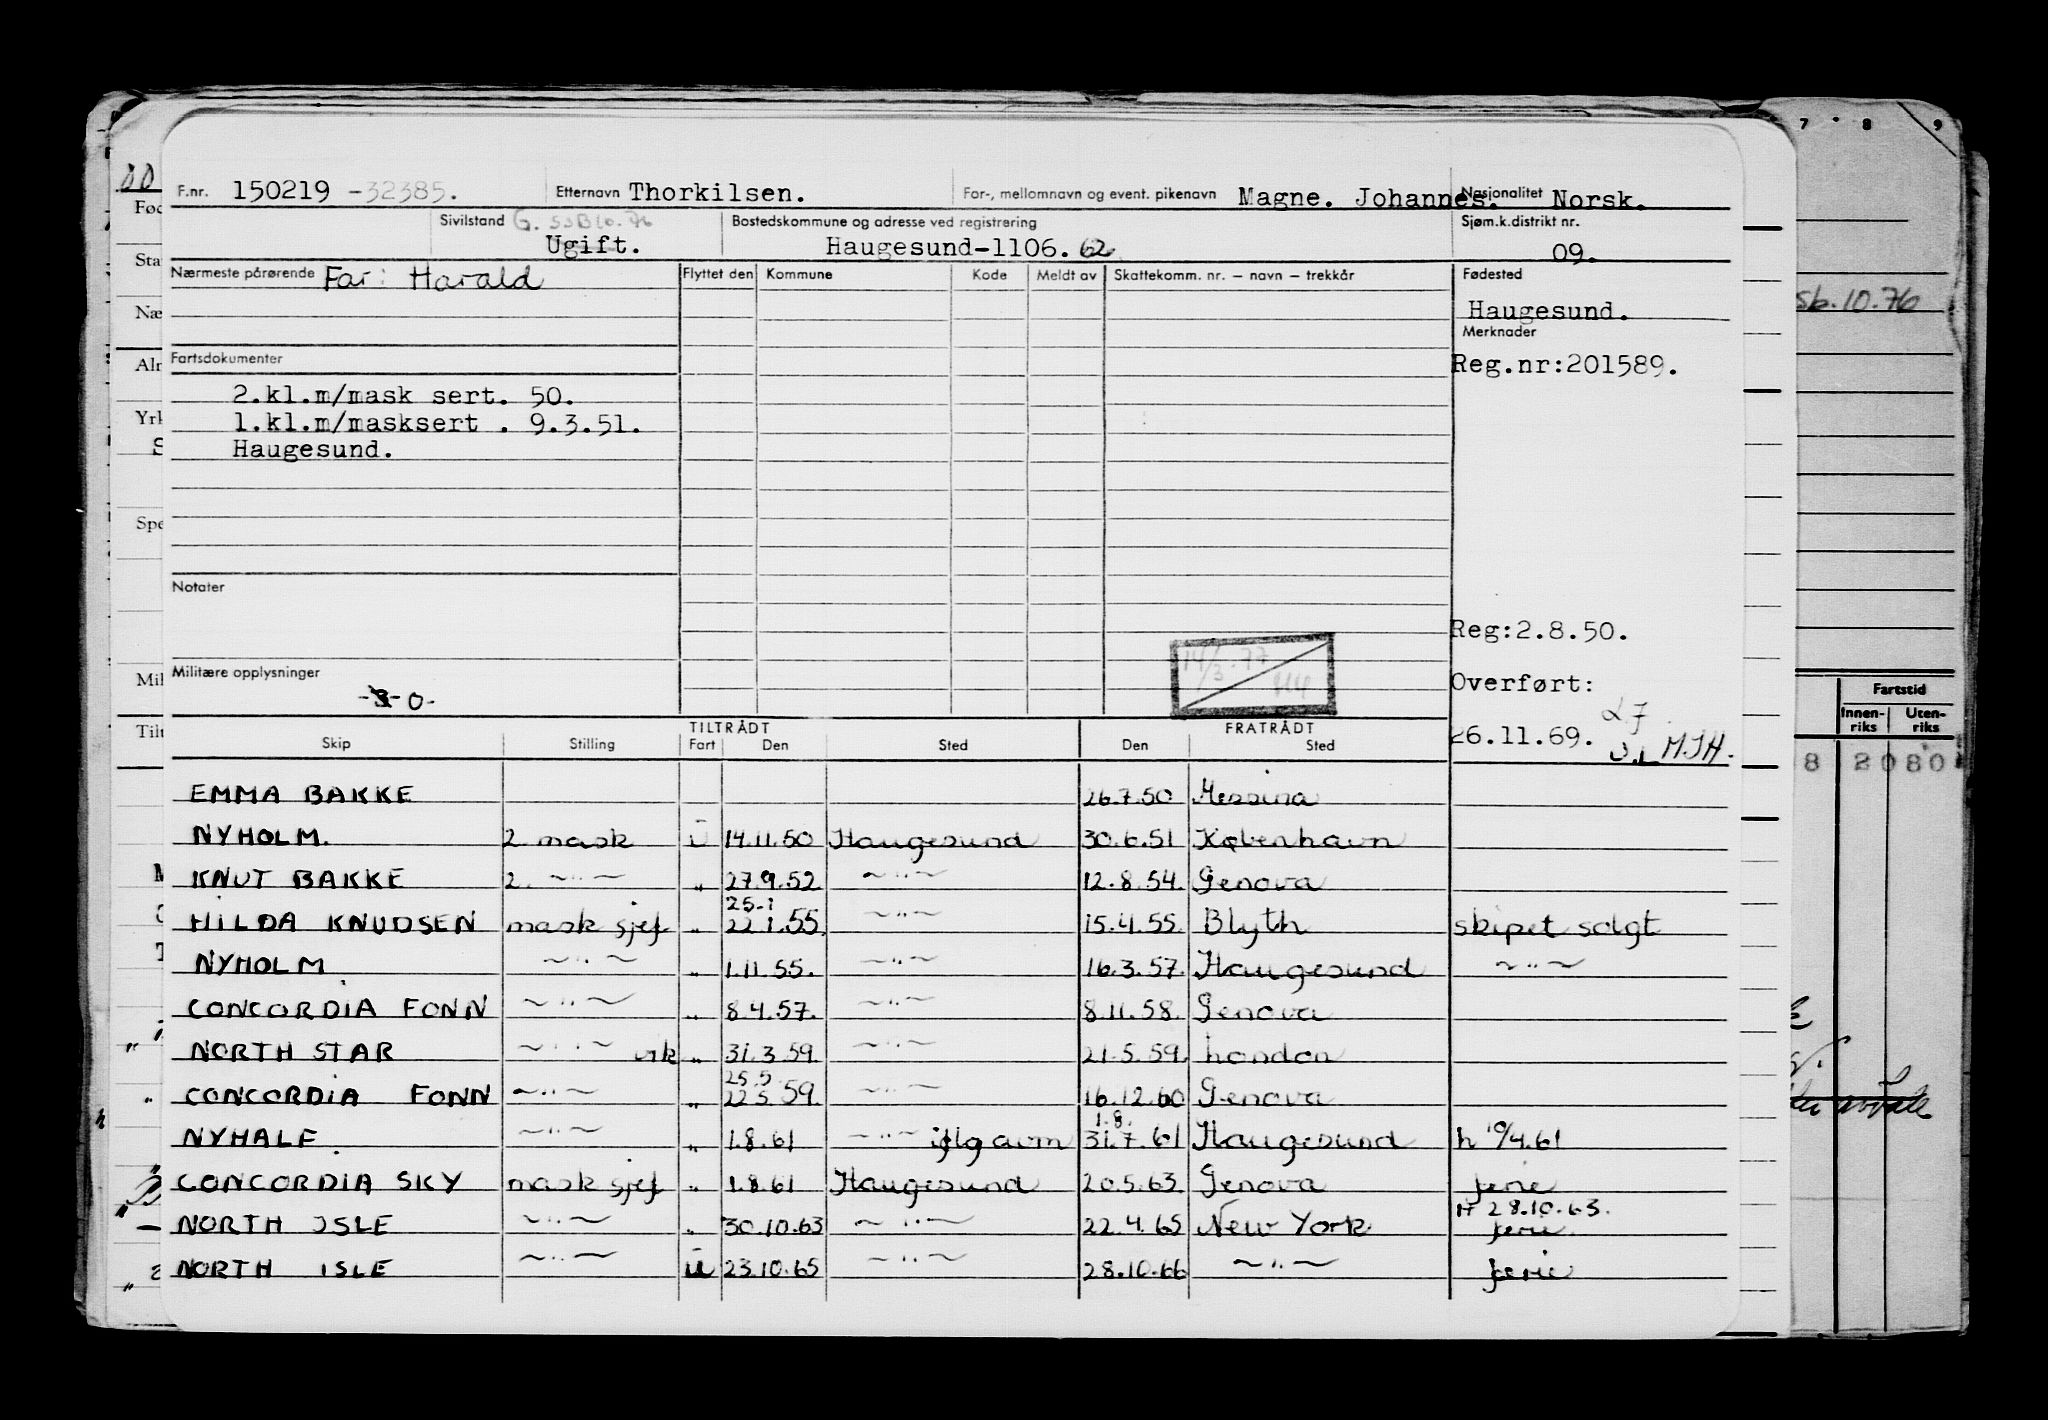 F.nr. 150219 -32385. Etternavn Thorkilsen. For-, mellomnavn og event. pikenavn Magne. Johannes. Nasjonalitet Norsk.
Sivilstand G. SSB 10.76 Ugift. Bostedskommune og adresse ved registrering Haugesund-1106. 62 Sjøm.k.distrikt nr. 09.
Nærmeste pårørende Far: Harald Flyttet den Kommune Kode Meldt av Skattekomm. nr. – navn – trekkår Fødested
Haugesund.
Merknader
Fartsdokumenter Reg.nr:201589.
2.kl.m/mask sert. 50.
1.kl.m/masksert . 9.3.51.
Haugesund.
Notater
Reg:2.8.50.
14/3.77
Militære opplysninger Overført:
-0-
26.11.69. M.J.H.
TILTRÅDT FRATRÅDT
Skip Stilling Fart Den Sted Den Sted
EMMA BAKKE 26.7.50 Messina
NYHOLM. 2 mask u 14.11.50 Haugesund 30.6.51 København
KNUT BAKKE 2. ~"~ " 27.9.52 ~"~ 12.8.54. Genova
25-1
HILDA KNUDSEN mask sjef " 22.1.55. ~"~ 15.4.55. Blyth skipet solgt
NYHOLM ~"~ " 1.11.55. ~"~ 16.3.57. Haugesund ~"~
CONCORDIA FONN ~"~ " 8.4.57. ~"~ 8.11.58. Genova
NORTH STAR ~"~ vik " 31.3.59. ~"~ 21.5.59. London
25.5
CONCORDIA FONN ~"~ " 22.5.59. ~"~ 16.12.60 Genova
1.8.
NYHALF ~"~ " 1.8.61 ~"~ iflg avm 31.7.61 Haugesund h 10/4.61
CONCORDIA SKY mask sjef " 1.8.61 Haugesund 20.5.63. Genova ferie
H 28.10.63.
NORTH ISLE ~"~ " 30.10.63 ~"~ 22.4.65 New York ferie
NORTH ISLE ~"~ u 23.10.65 ~"~ 28.10.66 ~"~ ferie
7 8 9
sb.10.76
Fartstid
Innen-riks Uten-riks
8 2080